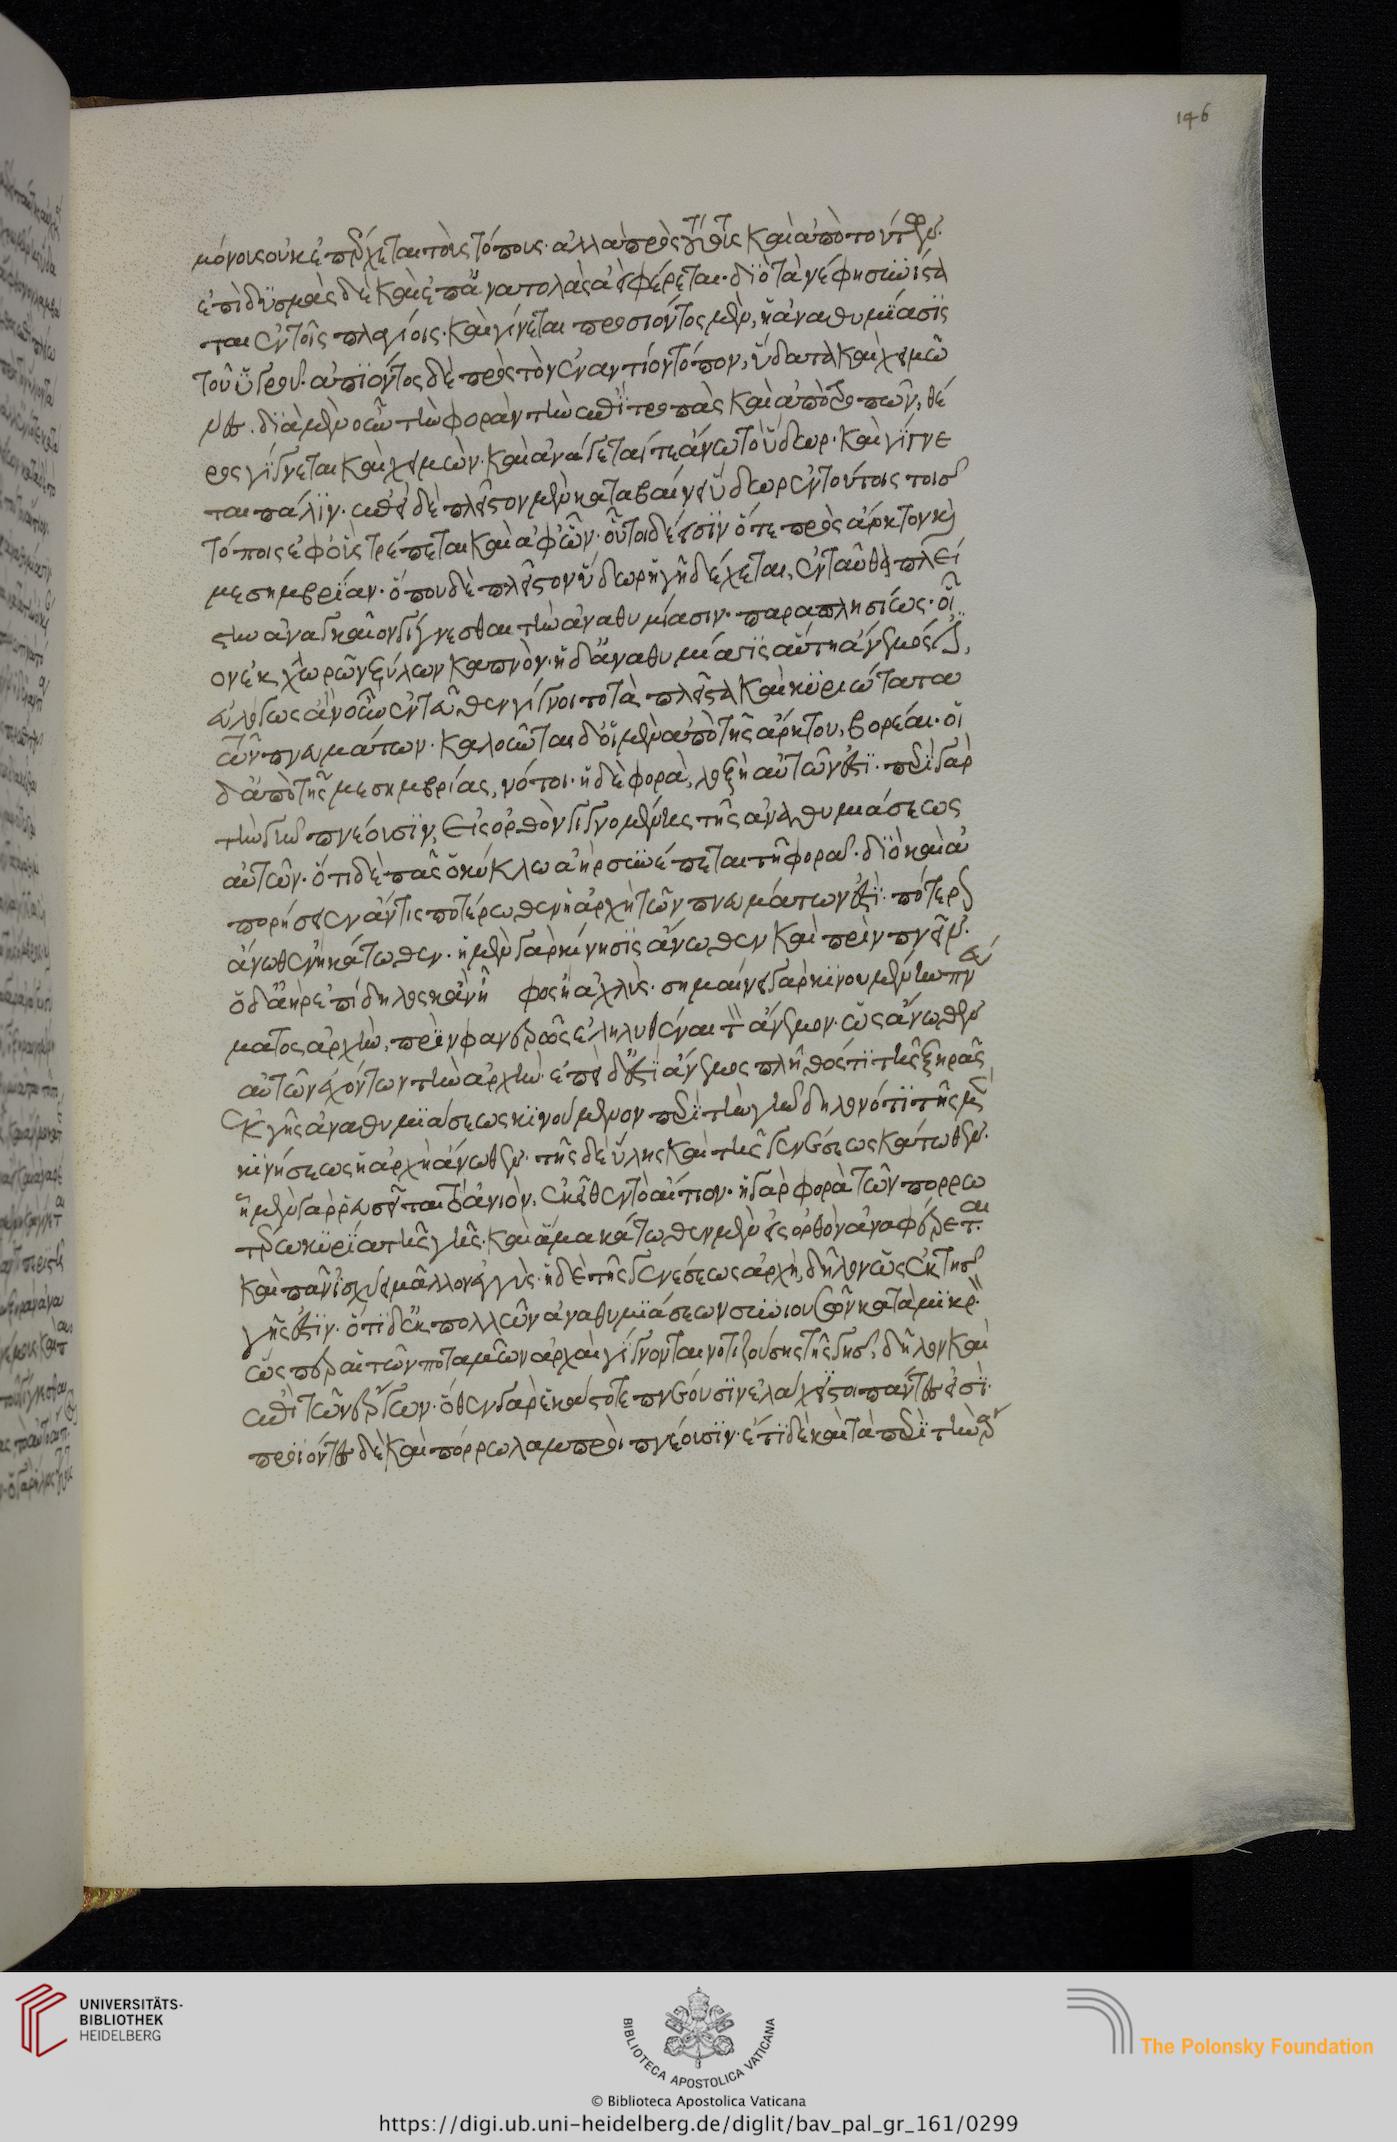 μόνοις οὐκ ἐπέρχεται τοῖς τόποις· ἀλλὰ πρὸς τούτοις καὶ ἀπὸ τούτων·
ἐπὶ δϋσμὰς δὲ καὶ ἐπ' ἀνατολὰς ἀεὶ φέρεται· διὸ τὰ νέφη συνίστα
ται ἐν τοῖς πλαγίοις· καὶ γίνεται προσιόντος μὲν, ἡ ἀναθυμίασϊς
τοῦ ὑγροῦ· ἀπϊόντος δὲ πρὸς τὸν ἐναντίον τόπον, ὕδατα καὶ χειμῶ
νες. διὰ μὲν οὖν τὴν φορὰν τὴν ἐπὶ τροπὰς καὶ ἀπὸ τροπῶν, θέ
ρος γίγνεται καὶ χειμών· καὶ ἀνάγεταί τε ἄνω τὸ ὕδωρ· καὶ γίγνε
ται πάλϊν· ἐπεὶ δὲ πλεῖστον μὲν καταβαίνει ὕδωρ ἐν τούτοις τοῖς
τόποις ἐφ' οἷς τρέπεται καὶ ἀφ' ὧν· οὗτοι δέ εἰσϊν ὅ τε πρὸς ἄρκτον καὶ
μεσημβρίαν· ὅπου δὲ πλεῖστον ὕδωρ ἡ γῆ δέχεται, ἐνταῦθα πλεί
στην ἀναγκαῖον γίγνεσθαι τὴν ἀναθυμίασιν· παραπλησίως· οἷ
ον ἐκ χλωρῶν ξύλων καπνὸν· ἡ δ' ἀναθυμίασϊς αὕτη ἄνεμός ἐστιν,
εὐλόγως ἂν οὖν ἐντεῦθεν γίγνοιτο τὰ πλεῖστα καὶ κϋριώτατα
τῶν πνευμάτων· καλοῦνται δ' οἱ μὲν ἀπὸ τῆς ἄρκτου, βορέαι· οἱ
δ' ἀπὸ τῆς μεσημβρίας, νότοι· ἡ δὲ φορὰ, λοξὴ αὐτῶν ἐστϊ· περὶ γὰρ
τὴν γῆν πνέουσϊν, εἰς ὀρθὸν γιγνομένης τῆς ἀναθυμιάσεως
αὐτῶν· ὅτι δὲ πᾶς ὁ κύκλω ἀὴρ συνέπεται τῆ φορᾶ· διὸ καὶ ἀ
πορήσειεν ἄν τις ποτέρωθεν ἡ ἀρχὴ τῶν πνευμάτων ἐστϊ· πότερον
ἄνωθεν ἢ κάτωθεν· ἡ μὲν γὰρ κίνησϊς ἄνωθεν καὶ πρὶν πνεῖν·
ὁ δ' ἀὴρ ἐπίδηλος κἂν ἦ φος ἢ ἀχλὺς· σημαίνει γὰρ κϊνουμένην πνεύ
ματος ἀρχὴν, πρὶν φανερῶς ἐληλυθέναι τὸν ἄνεμον· ὡς ἄνωθεν
αὐτῶν ἐχόντων τὴν ἀρχήν· ἐπεὶ δ' ἐστϊ ἄνεμος πλῆθός τϊ τῆς ξηρᾶς
ἐκ γῆς ἀναθυμϊάσεως κϊνούμενον περὶ τὴν γῆν δῆλον ὅτϊ τῆς μὲν
κϊνήσεως ἡ ἀρχὴ ἄνωθεν· τῆς δὲ ὕλης καὶ τῆς γενέσεως κάτωθεν·
ἧ μὲν γὰρ ῥευσεῖται τὸ ἀνιὸν, ἐκεῖθεν τὸ αἴτιον· ἡ γὰρ φορὰ τῶν πορρω
τέρω κϋρία τῆς γῆς· καὶ ἅμα κάτωθεν μὲν εἰς ὀρθὸν ἀναφέρεται
καὶ πᾶν ἰσχύει μᾶλλον ἐγγὺς· ἡ δὲ τῆς γενέσεως ἀρχὴ, δῆλον ὡς ἐκ τῆς
γῆς ἐστϊν· ὅτϊ δ' ἐκ πολλῶν ἀναθυμϊάσεων συνιουσῶν κατὰ μϊκρὸν
ὥσπερ αἱ τῶν ποταμῶν ἀρχαὶ γίγνονται νοτιζούσης τῆς γῆς, δῆλον καὶ
ἐπὶ τῶν ἔργων· ὅθεν γὰρ ἑκάστοτε πνέουσϊν ἐλάχϊστοι πάντες εἰσὶ·
προϊόντες δὲ καὶ πόρρω λαμπροὶ πνέουσϊν· ἔτϊ δὲ καὶ τὰ περὶ τὴν ἄρ
146
UNIVERSITÄTS-
BIBLIOTHEK
HEIDELBERG
BIBLIOTECA APOSTOLICA VATICANA
The Polonsky Foundation
© Biblioteca Apostolica Vaticana
https://digi.ub.uni-heidelberg.de/diglit/bav_pal_gr_161/0299